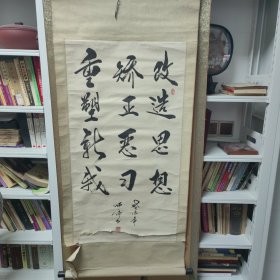 改造思想
矫正恶习
重塑新我